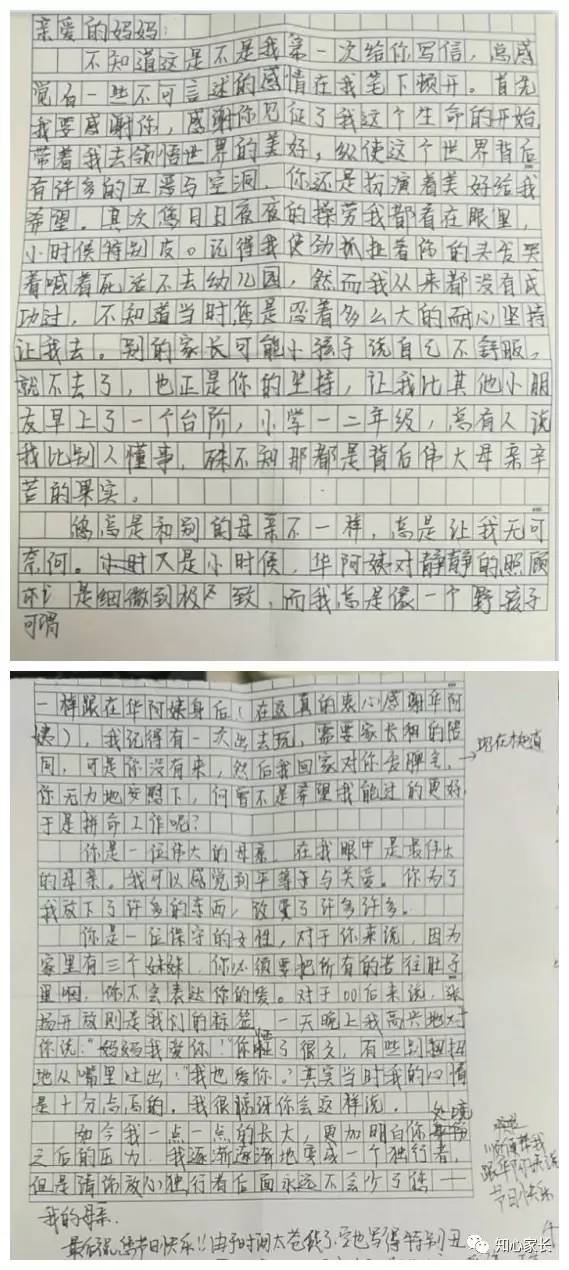 亲爱的妈妈:
不知道这是不是我第一次给你写信,总感
觉有一些不可言述的感情在我笔下顿开。首先
我要感谢你,感谢你见证了我这个生命的开始,
带着我去领悟世界的美好,纵使这个世界背后
有许多的丑恶与空洞,你还是扮演着美好给我
希望。其次您日日夜夜的操劳我都看在眼里,
小时候特别皮。记得我使劲抓扯着你的头发哭
着喊着死活不去幼儿园,然而我从来都没有成
功过,不知道当时您是忍着多么大的耐心坚持
让我去。别的家长可能小孩子说自己不舒服,
就不去了,也正是你的坚持,让我比其他小朋
友早上了一个台阶,小学一二年级,总有人说
我比别人懂事,殊不知那都是背后伟大母亲辛
苦的果实。
您总是和别的母亲不一样,总是让我无可
奈何。又是小时候,华阿姨对静静的照顾
可谓是细微到极致,而我总是像一个野孩子
一样跟在华阿姨身后(在这真的衷心感谢华阿
姨),我记得有一次出去玩,需要家长相的陪
同,可是你没有来,然后我回家对你发脾气,
→现在想道
你无力地安慰下,何曾不是希望我能过的更好,
于是拼命工作呢?
你是一位伟大的母亲,在我眼中是最伟大
的母亲。我可以感觉到平等于与关爱。你为了
我放下了许多的东西,改变了许多许多。
你是一位保守的女性,对于你来说,因为
家里有三个妹妹,你必须要把所有的苦往肚子
里咽,你不会表达你的爱。对于00后来说,张
扬开放则是我们的标签,一天晚上我高兴地对
你说:“妈妈我爱你!”你愣了很久,有些别扭
地从嘴里吐出:“我也爱你。”其实当时我的心情
是十分点高的。我很惊讶你会这样说。
如今我一点一点的长大,更加明白你处境
之后的压力,我逐渐逐渐地变成一个独行者,
但是请你放心独行者后面永远不会少了您——
我的母亲.
顺便帮我
跟华阿姨说
节日快乐
最后祝您节日快乐!!由于时间太仓促了字也写得特别丑
知心家长